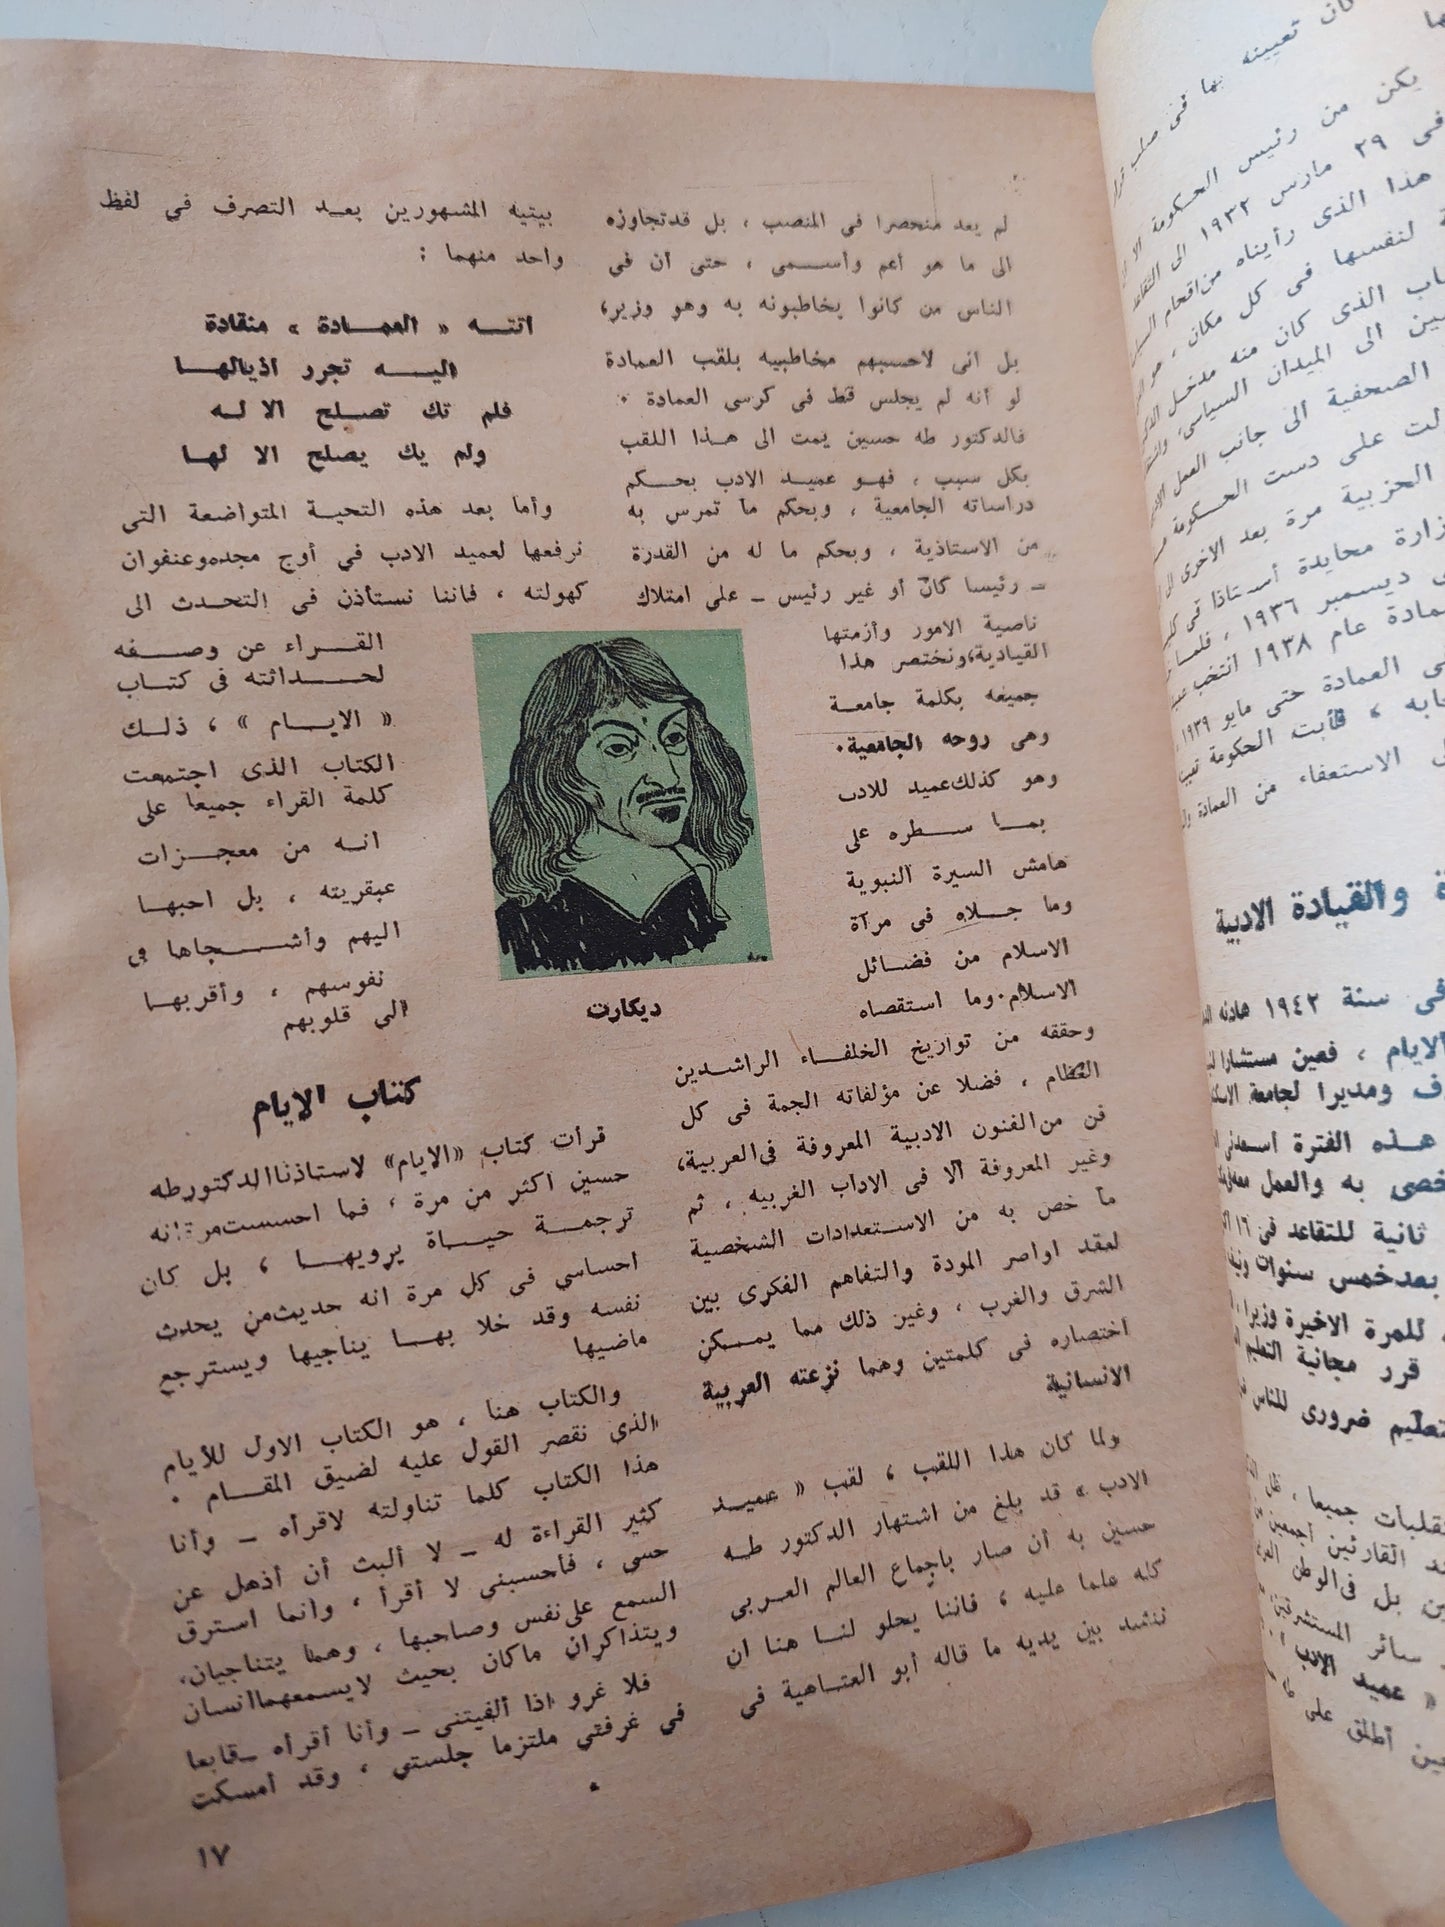 لم يعد منحصرا في المنصب ، بل قدتجاوزه
الى ما هو أعم وأسمى ، حتى أن في
الناس من كانوا يخاطبونه به وهو وزير،
بل انى لاحسبهم مخاطبيه بلقب العمادة
لو أنه لم يجلس قط فى كرسى العمادة .
فالدكتور طه حسين يمت الى هذا اللقب
بكل سبب ، فهو عميد الادب بحكم
دراساته الجامعية ، وبحكم ما تمرس به
من الاستاذية ، وبحكم ما له من القدرة
ـ رئيسا كان أو غير رئيس ـ على امتلاك
ناصية الامور وأزمتها
القيادية،ونختصر هذا
جميعه بكلمة جامعة
وهى روحه الجامعية.
وهو كذلك عميد للادب
بما سطره على
هامش السيرة النبوية
وما جلاه فى مرآة
الاسلام من فضائل
الاسلام.وما استقصاه
وحققه من تواريخ الخلفاء الراشدين
العظام ، فضلا عن مؤلفاته الجمة فى كل
فن من الفنون الادبية المعروفة فى العربية،
وغير المعروفة الا فى الاداب الغربيه ، ثم
ما خص به من الاستعدادات الشخصية
لعقد اواصر المودة والتفاهم الفكرى بين
الشرق والغرب ، وغير ذلك مما يمكن
اختصاره فى كلمتين وهما نزعته العربية
الانسانية
ولما كان هذا اللقب ، لقب « عميد
الادب » قد بلغ من اشتهار الدكتور طه
حسين به أن صار باجماع العالم العربى
كله علما عليه ، فاننا يحلو لنا هنا ان
ننشد بين يديه ما قاله أبو العتاهية في
بيتيه المشهورين بعد التصرف في لفظ
واحد منهما :
اتته « العمادة » منقادة
اليه تجرر اذيالها
فلم تك تصلح الا له
ولم يك يصلح الا لها
وأما بعد هذه التحية المتواضعة التى
نرفعها لعميد الادب في أوج مجده وعنفوان
كهولته ، فاننا نستأذن فى التحدث الى
القراء عن وصفه
لحداثته فى كتاب
« الايام » ، ذلك
الكتاب الذى اجتمعت
كلمة القراء جميعا على
انه من معجزات
عبقريته ، بل احبها
اليهم وأشجاها فى
نفوسهم ، وأقربها
الى قلوبهم
ديكارت
كتاب الايام
قرأت كتاب «الايام» لاستاذنا الدكتور طه
حسين اكثر من مرة ، فما احسست مرة انه
ترجمة حياة يرويها ، بل كان
احساسي فى كل مرة انه حديث من يحدث
نفسه وقد خلا بها يناجيها ويسترجع
ماضيها
والكتاب هنا ، هو الكتاب الاول للأيام
الذى نقصر القول عليه لضيق المقام .
هذا الكتاب كلما تناولته لاقرأه ـ وأنا
كثير القراءة له ـ لا ألبث أن أذهل عن
حسى ، فأحسبنى لا أقرأ ، وانما استرق
السمع على نفس وصاحبها ، وهما يتناجيان،
ويتذاكران ماكان بحيث لايسمعهما انسان
فلا غرو اذا ألفيتنى ـ وأنا أقرأه ـ قابعا
في غرفتي ملتزما جلستي ، وقد أمسكت
١٧
تعيينه بها فى صلب
يكن من رئيس الحكومة
فى ٢٩ مارس ١٩٣٢ الى التقاعد
هذا الذى رأيناه من اقحام
لنفسها فى كل مكان ، هو
الذى كان منه مدخل
الى الميدان السياسى
الصحفية الى جانب العمل
على دست الحكومة
الحزبية مرة بعد الاخرى
محايدة أستاذا فى
ديسمبر ١٩٣٦ ، فلما
عام ١٩٣٨ انتخب
العمادة حتى مايو ١٩٣٩
، فأبت الحكومة
الاستعفاء من العمادة
والقيادة الادبية
فى سنة ١٩٤٢ هادنه
الايام ، فعين مستشارا
ومديرا لجامعة
هذه الفترة أسعدنى
به والعمل
ثانية للتقاعد فى ١٦
بعد خمس سنوات
للمرة الاخيرة وزيرا
قرر مجانية التعليم
ضرورى للناس
جميعا ، ظل
القارئين أجمعين
بل فى الوطن
سائر المستشرقين
« عميد الادب »
أطلق على